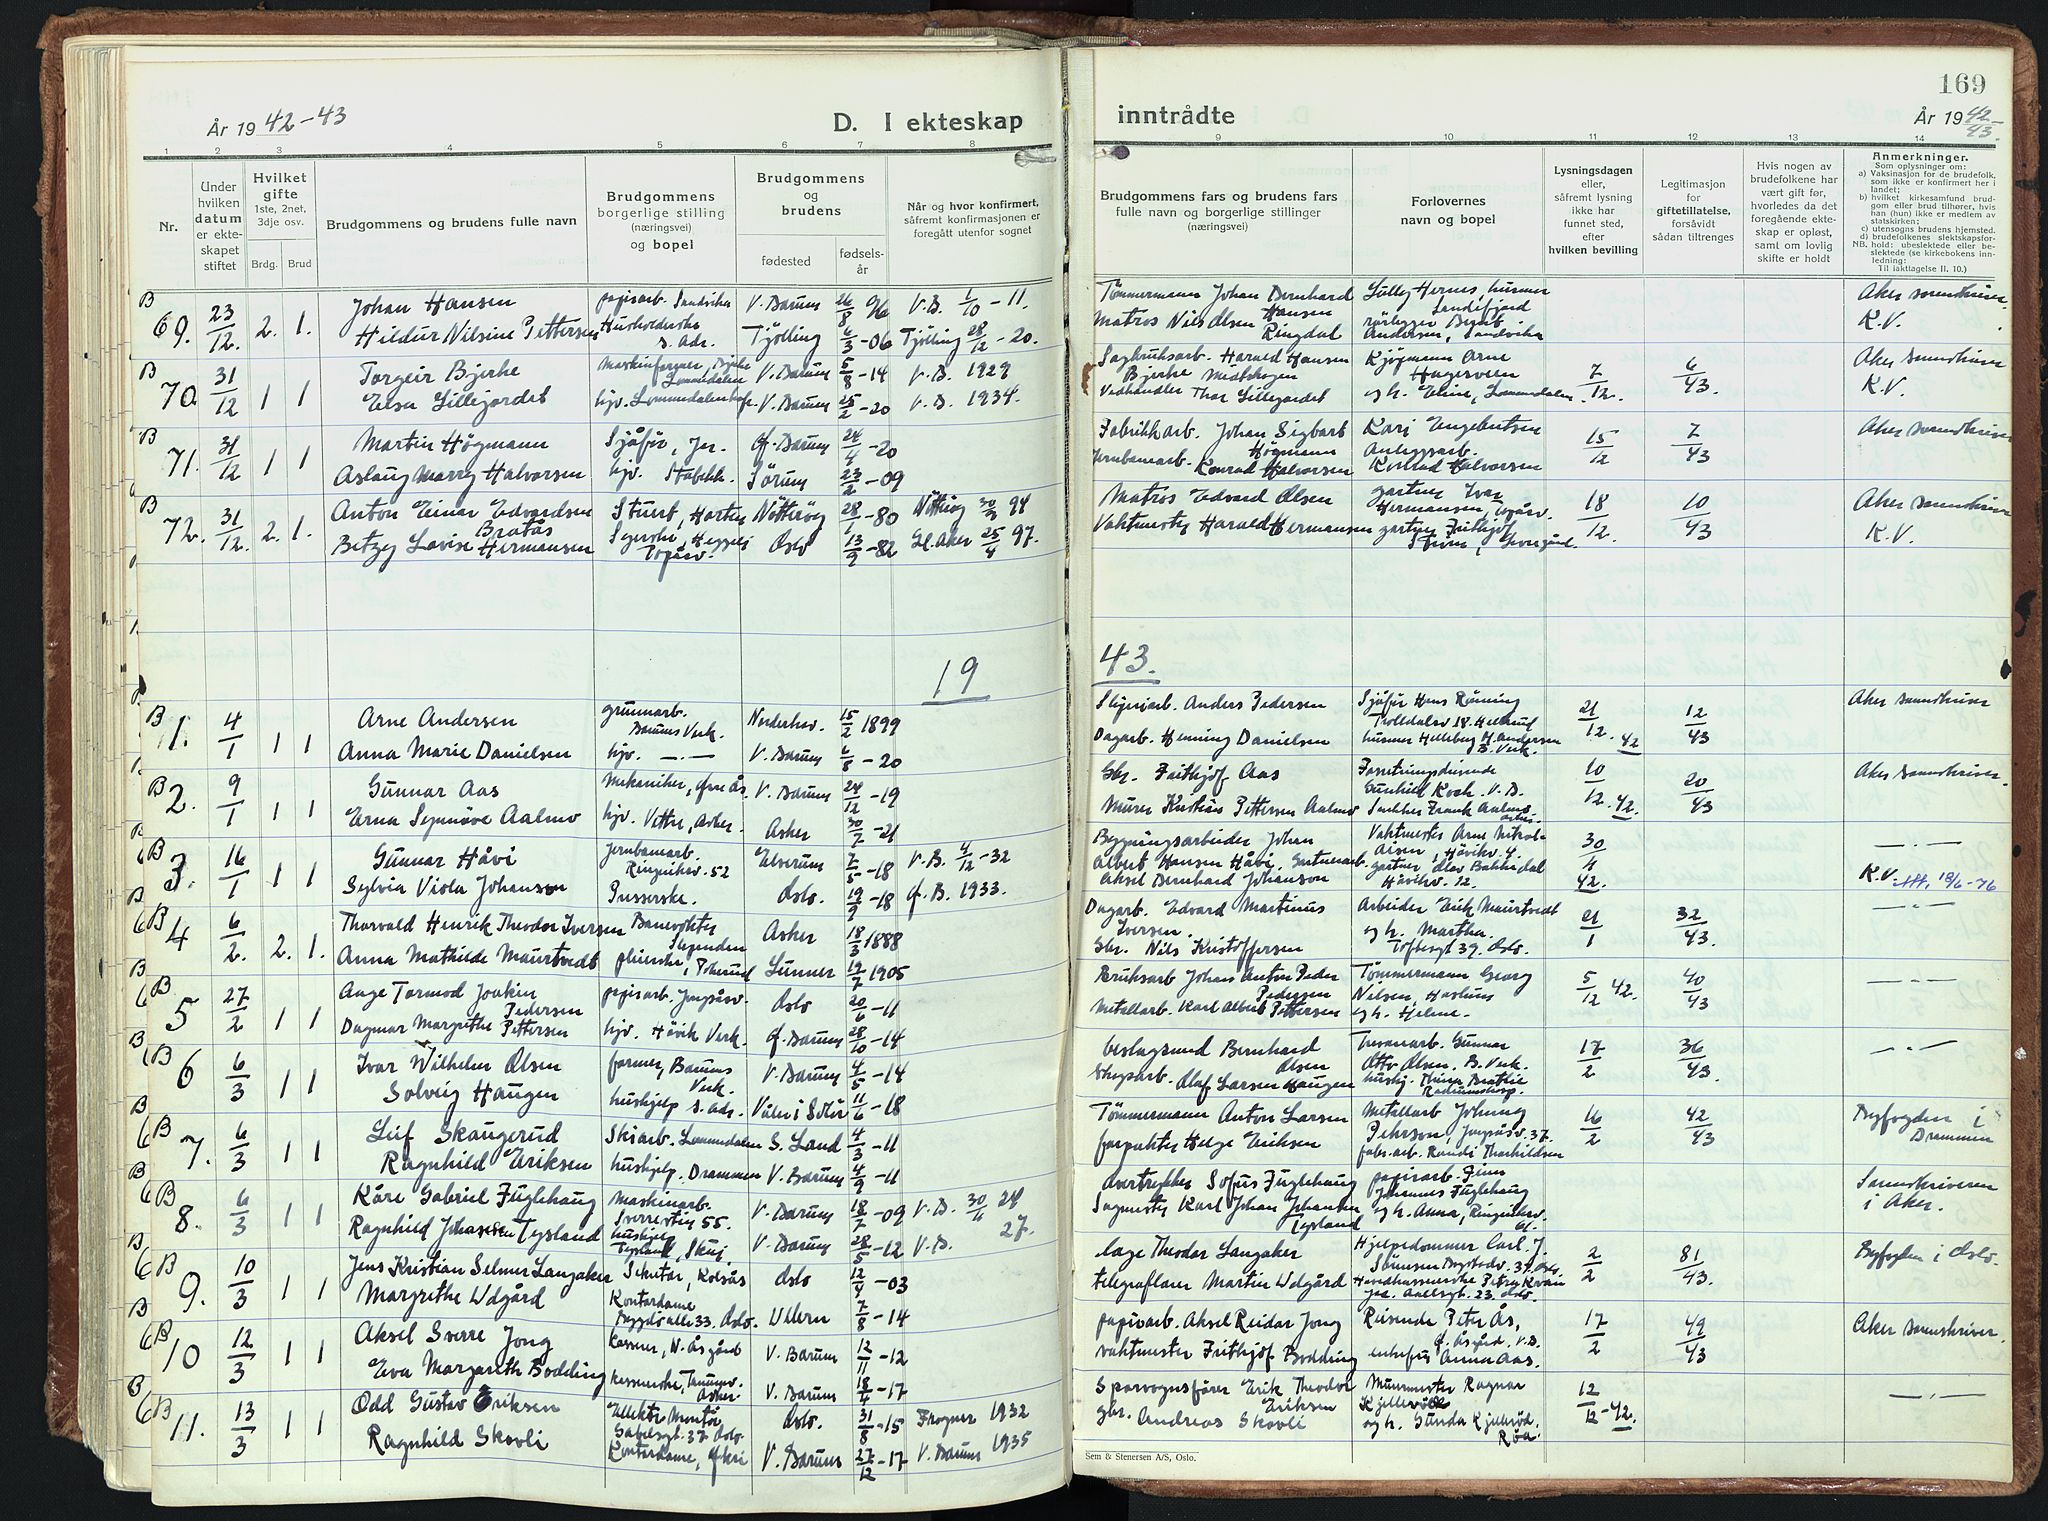 169
År 1942-43
D. I ekteskap
inntrådte
År 1942-43.
1 2 3 4 5 6 7 8
9 10 11 12 13 14
Nr.
Under hvilken datum er ekteskapet stiftet
Hvilket gifte
1ste, 2net, 3dje osv.
Brdg. Brud
Brudgommens og brudens fulle navn
Brudgommens borgerlige stilling (næringsvei) og bopel
Brudgommens og brudens
fødested
fødselsår
Når og hvor konfirmert, såfremt konfirmasjonen er foregått utenfor sognet
Brudgommens fars og brudens fars fulle navn og borgerlige stillinger (næringsvei)
Forlovernes navn og bopel
Lysningsdagen eller, såfremt lysning ikke har funnet sted, efter hvilken bevilling
Legitimasjon for giftetillatelse, forsåvidt sådan tiltrenges
Hvis nogen av brudefolkene har vært gift før, hvorledes da det foregående ekteskap er opløst, samt om lovlig skifte er holdt
Anmerkninger.
Som oplysninger om:
a) Vaksinasjon for de brudefolk, som ikke er konfirmert her i landet;
b) hvilket kirkesamfund brudgom eller brud tilhører, hvis han (hun) ikke er medlem av statskirken;
c) utensogns brudens hjemsted.
d) brudefolkenes slektskapsforhold: ubeslektede eller beslektede (se kirkebokens innledning:
NB.
Til iakttagelse II. 10.)
B 69. 23/12. 2. 1. Johan Hansen papirarb. Sandvika V. Bærum 26/8 96 V.B. 1/10 - 11. Tømmermann Johan Bernhard Hansen Lilly Hernes, husmor Sandefjord Aker sorenskriver.
Hildur Nilsine Pettersen Husholderske s. adr. Tjølling 6/3 -06 Tjølling 28/12 - 20. Matros Nils Olsen Ringdal rørlegger Andersen, Sandvika K.V.
B 70. 31/12 1 1 Torgeir Bjerke Lommedalen V. Bærum 5/8 -14 V.B. 1929 Sagbruksarb. Harald Hansen Bjerke Kjøpmann Arne Hagesveen 7/12. 6/43. Aker sorenskriver
Elsa Lillegordet hjv. V. Bærum 25/2 -20 V.B. 1934. Vedhandler Thor Lillegordet og h. Eline, Lommedalen. K.V.
B 71. 31/12 1 1 Martin Høgmann Sjåfør, Jar. Ø. Bærum 24/4 -20 Fabrikkarb. Johan Sigbart Høgmann Kari Engebretsen 15/12 7/43 Aker sorenskriver
Aslaug Marry Halvorsen hjv. Stabekk. Sørum 23/2 -09 Jernbanearb. Konrad Halvorsen Anleggsarb. Konrad Halvorsen
B 72. 31/12. 2. 1. Anton Einar Edvardsen Bratås Stuert, Horten Nøtterøy 28/1 -80 Nøtterøy 30/9 94 Matros Edvard Olsen gartner Ivar Hermansen 18/12. 10/43 Aker sorenskriver
Betzy Lovise Hermansen Oslo 13/9 -82 Gl. Aker 25/4 97. Vaktmester Harald Hermansen gartner Frithjof K.V.
19
43.
B 1. 4/1 1 1 Arne Andersen gruvearb. Bærums Verk. Norderhov. 15/2 1899 Anders Pedersen Sjåfør Hans Rønning 21/12. 42 12/43 Aker sorenskriver
Anna Marie Danielsen hjv. —"— V. Bærum 6/8 -20 Dagarb. Henning Danielsen B. Verk.
B 2. 9/1 1 1 Gunnar Aas Mekaniker, V. Bærum 24/12 -19 Gbr. Frithjof Aas Forretningsdrivende Gunhild Koch. V.B. 10/12. 42. 20/43 Aker sorenskriver.
Erna Synnøve Aalmo hjv. Vettre, Asker. Asker 30/7 -21 Murer Kristian Pettersen Aalmo Snekker Frank Aalmo
B 3. 16/1 1 1 Gunnar Håvi Jernbanearb. Ringeriksv. 52 Elverum 7/5 -18 V.B. 4/12 -32 Bygningsarbeider Johan Albert Hansen Håvi. Vaktmester Arne 30/4 42. —"—
Sylvia Viola Johanson Pusserske. Oslo. 19/9 -18 Ø.B. 1933. Gartnerarb. Aksel Bernhard Johanson gartner Olav Bakkedal Håvikv. 12. K.V. 18/6-76
B 4 6/2. 2. 1. Thorvald Henrik Theodor Iversen Banevokter Slependen Asker 18/3 1888 Dagarb. Edvard Martinus Iversen. Arbeider Erik Maurtvedt 21/1 32/43. —"—
Anna Mathilde Maurtvedt Lunner 19/7 1905 Gbr. Nils Kristoffersen og h. Martha. Toftesgt 39. Oslo.
B 5 27/2 1 1 Aage Tormod Joakim Pedersen papirarb. Oslo 20/6 -11 Bruksarb. Johan Anton Peder Pedersen Tømmermann Georg Nilsen, Haslum 5/12 42. 40/43 —"—
Dagmar Margrethe Pettersen hjv. Håvik Verk. Ø. Bærum 28/10 -14 Metallarb. Karl Albert Pettersen og h. Helene.
B 6 6/3 1 1 Ivar Wilhelm Olsen former, Bærums Verk. V. Bærum 4/5 -14 beslagsmed Bernhard Olsen Gunnar Otto Olsen, B. Verk. 17/2 36/43. —"—
Solveig Haugen hushjelp s. adr. Våler i Solør 11/6 -18 Skogsarb. Olaf Larsen Haugen
B 7. 6/3 1 1 Leif Skaugerud Skiarb. Lommedalen S. Land 4/3 -11 Tømmermann Anton Larsen Metallarb Johnny Pehrson, 16/2 42/43 Byfogden i Drammen
Ragnhild Eriksen hushjelp. Drammen V. Bærum 4/9 -11 forpakter Helge Eriksen fabr.arb. Randi Thorkildsen
B 8. 6/3 1 1 Kåre Gabriel Fuglehaug Maskinarb. V. Bærum 18/7 -09 V.B. 30/11 24 overtrykker Sofus Fuglehaug papirarb. Finn Johannes Fuglehaug Sorenskriveren i Aker.
Ragnhild Johansen Tysland hushjelp Tysland, Skui V. Bærum 28/5 -12 V.B. 27. Sagmester Karl Johan Johansen Tysland og h. Anna, Ringeriksv.
B 9. 10/3 1 1 Jens Kristian Selmer Langaker Sekretær, Kolsås Oslo 12/4 -03 Theodor Langaker Hjelpedommer Carl J. Sørensen 2/2 81/43. Byfogden i Oslo.
Margrethe Ødgård Kontordame Bygdø alle 33. Oslo. Ullern 7/8 -14 telegrafian Martin Ødgård
B 10 12/3 1 1 Aksel Sverre Jong kasserer, N. Åsgård V. Bærum 12/11 -12 papirarb. Aksel Reidar Jong Reisende Peter Ås, 17/2 49/43 Aker sorenskriver.
Eva Margareth Bodding kassererske, Asker V. Bærum 18/4 -17 vaktmester Frithjof Bodding Anna Aas.
B 11. 13/3 1 1 Odd Gustav Eriksen Elektr. Montør Gabelsgt. 37. Oslo Oslo. 31/8 -15 Frogner 1932 Sporvognsfører Erik Theodor Eriksen Murmester Ragnar Kjellerød 12/12 -42. —"—
Ragnhild Skovli Kontordame, V. Bærum 27/12 -17 V. Bærum 1935 gbr. Andreas Skovli og h. Gunda Kjellerød. Røa
Sem & Stenersen A/S, Oslo.